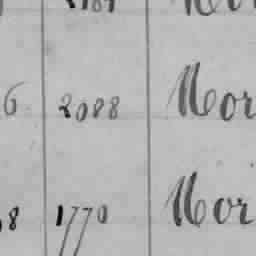 6 2088 Mor
8 1770 Mor